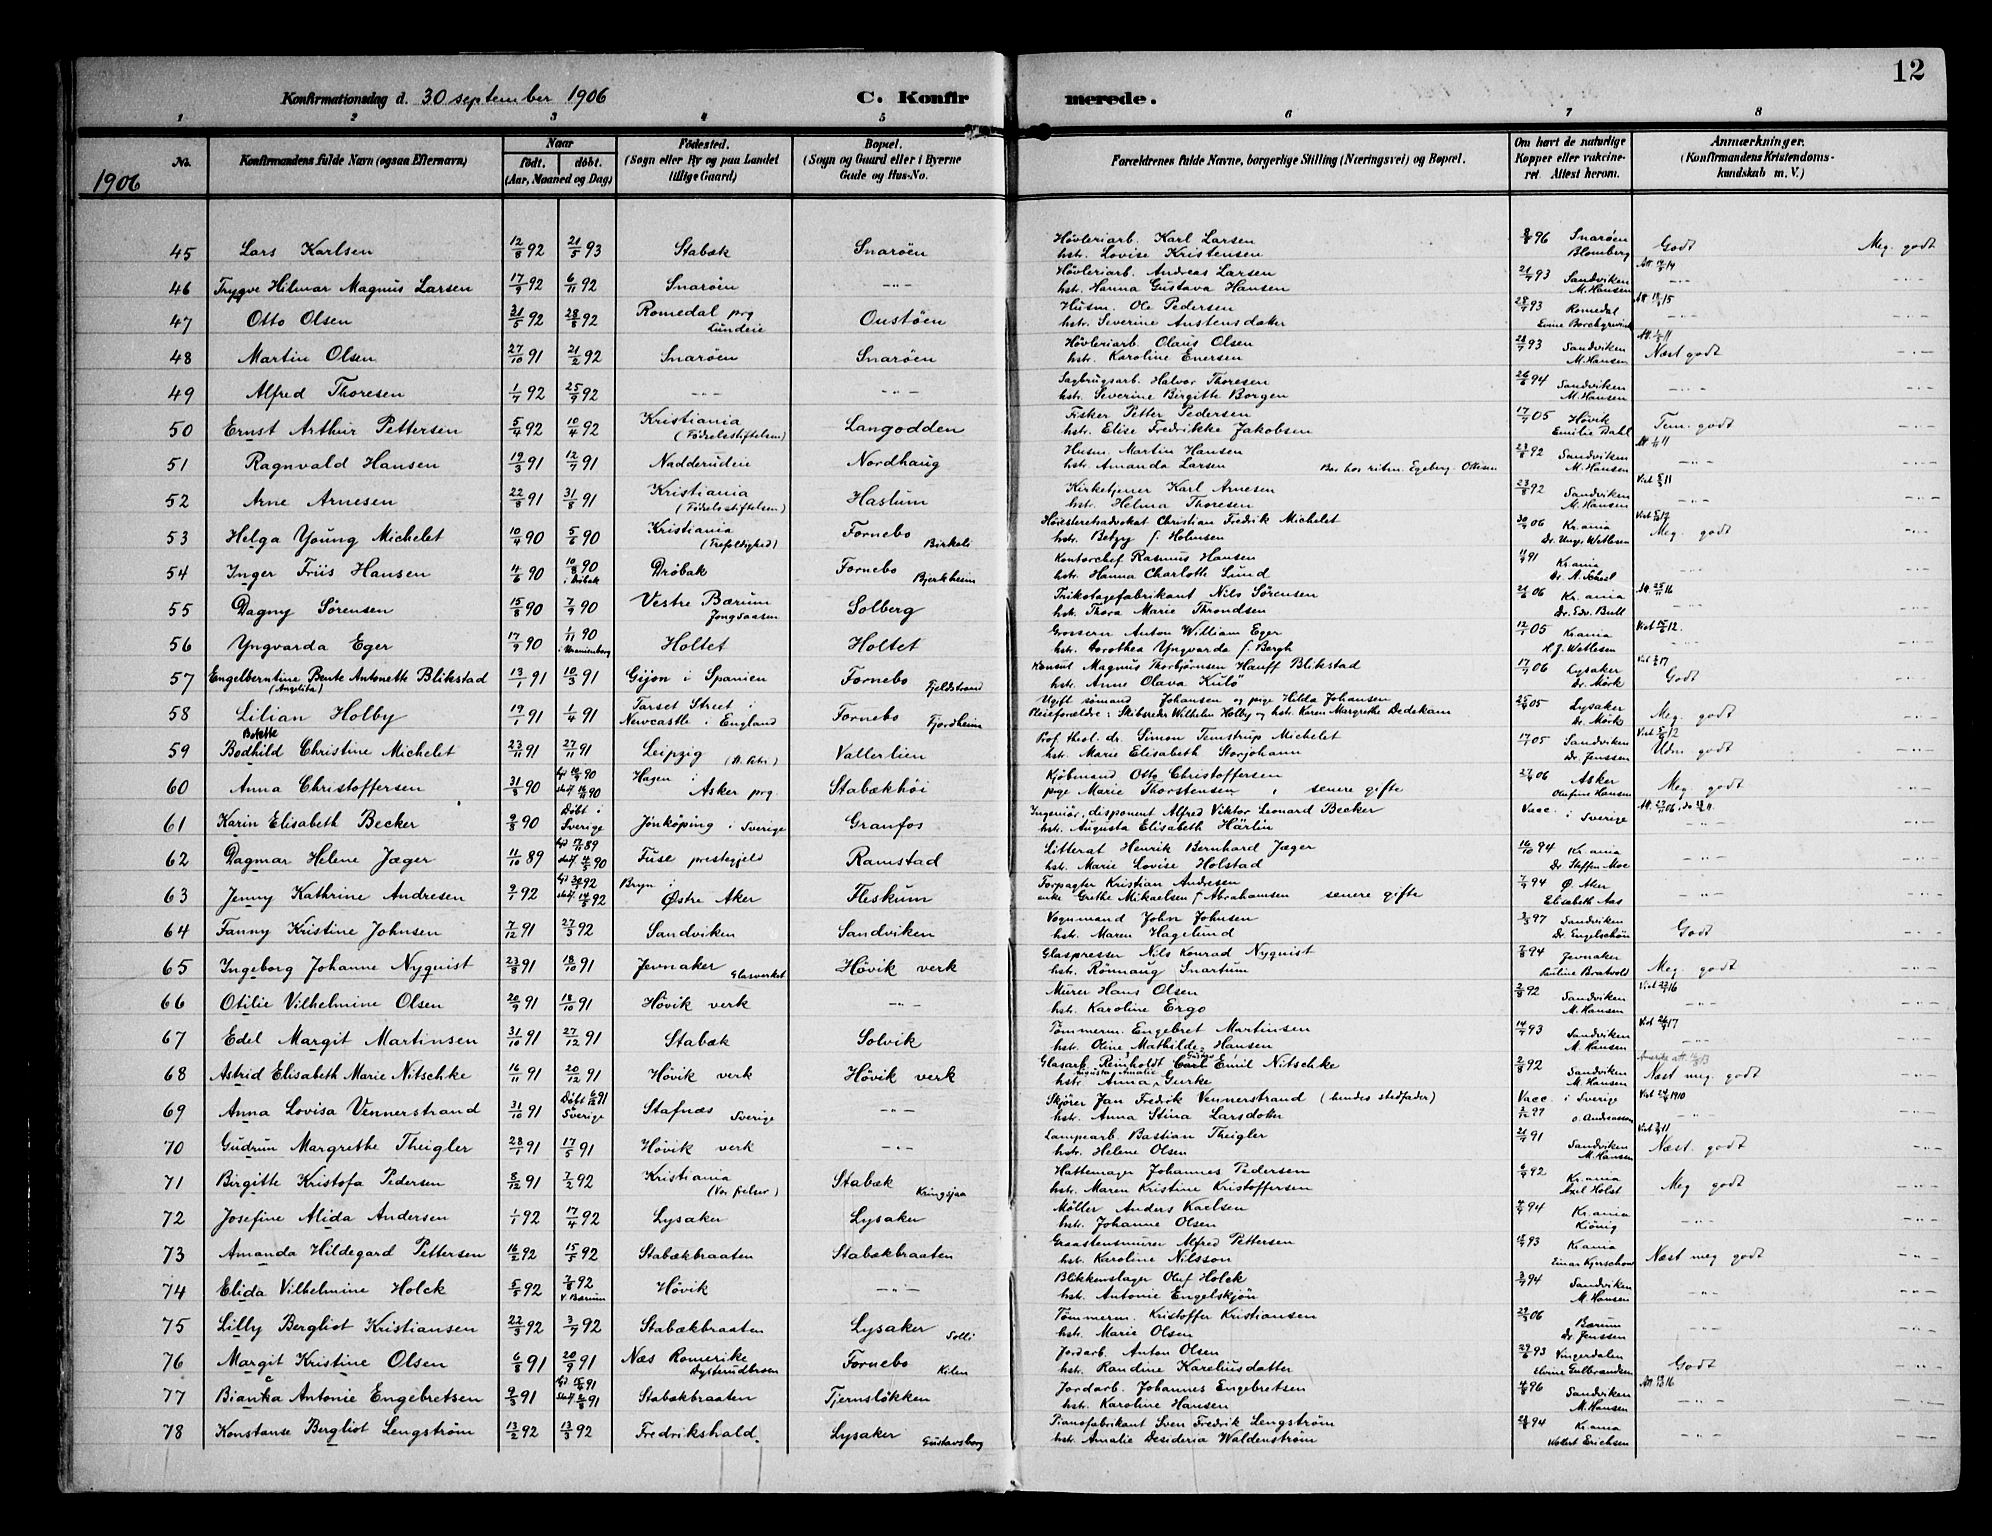 12
Konfirmationsdag d. 30 september 1906 C. Konfirmerede.
1 2 3 4 5 6 7 8
1906
No. Konfirmandens fulde Navn (ogsaa Efternavn) Naar født. døbt. (Aar, Maaned og Dag) Fødested. (Sogn eller By og paa Landet tillige Gaard) Bopæl. (Sogn og Gaard eller i Byerne Gade og Hus-No. Forældrenes fulde Navne, borgerlige Stilling (Næringsvei) og Bopæl. Om havt de naturlige Kopper eller vakcineret. Attest herom. Anmærkninger. (Konfirmandens Kristendomskundskab m. V.)
45 Lars Karlsen 12/8 92 21/5 93 Stabæk Snarøen Høvleriarb. Karl Larsen hstr. Lovise Kristensen 96 Snarøen Blomberg Godt Meg. godt
46 Trygve Hilmar Magnus Larsen 17/9 92 6/11 92 Snarøen -"- Høvleriarb. Andreas Larsen hstr. Hanna Gustava Hansen 93 Sandviken M. Hansen -"-
47 Otto Olsen 31/5 92 28/8 92 Romedal prg Lundeie Oustøen Husm. Ole Pedersen hstr. Severine Austensdater 93 Romedal -"-
48 Martin Olsen 27/10 91 21/2 92 Snarøen Snarøen Høvleriarb. Olaus Olsen hstr. Karoline Enersen 93 Sandviken M. Hansen Næst godt
49 Alfred Thoresen 1/7 92 25/9 92 -"- -"- Sagbrugsarb. Halvor Thoresen hstr. Severine Birgitte Borgen 94 Sandviken M. Hansen -"-
50 Ernst Arthur Pettersen 5/4 92 10/4 92 Kristiania (Fødselsstiftelsen) Langodden Fisker Petter Pedersen hstr. Elise Fredrikke Jakobsen 05 Høvik Emilie Dahl Tem. godt
51 Ragnvald Hansen 19/3 91 12/7 91 Nadderudeie Nordhaug Husm. Martin Hansen hstr. Amanda Larsen Bor hos ritm. Egeberg. Ottesen 92 Sandviken M. Hansen -"-
52 Arne Arnesen 22/8 91 31/8 91 Kristiania (Fødselsstiftelsen) Haslum Kirketjener Karl Arnesen hstr. Helma Thoresen 92 Sandviken M. Hansen -"-
53 Helga Young Michelet 10/4 90 5/6 90 Kristiania (Trefoldighed) Fornebo Birkeli Høiesteretsadvokat Christian Fredrik Michelet hstr. Betzy f. Holmsen 06 Kr.ania Meg. godt
54 Inger Friis Hansen 11/6 90 10/8 90 i Drøbak Drøbak Fornebo Bjerkheim Kontorchef Rasmus Hansen hstr. Hanna Charlotte Lund 91 Kr.ania -"-
55 Dagny Sørensen 15/8 90 7/9 90 Vestre Bærum Jongsaasen Solberg Trikotagefabrikant Nils Sørensen hstr. Thora Marie Throndsen 06 Kr.ania Dr. Edv. Bull -"-
56 Yngvarda Eger 17/9 90 1/11 90 i Uranienborg Holtet Holtet Grosserer Anton William Eger hstr. Dorothea Yngvarda f. Bergh 05 Kr.ania -"-
57 Engelberntine Bente Antonette Blikstad (Angelita) 13/1 91 10/3 91 Gijon i Spanien Fornebo Fjeldstrand Konsul Magnus Thorbjørnsen Hauff Blikstad hstr. Anne Olava Kulø 06 Lysaker Dr. Mørk Godt
58 Lilian Holby 19/1 91 1/4 91 Tarset Street i Newcastle i England Fornebo Fjordheim Ugift sømand Johansen og pige Hilda Johansen Pleieforældre: Skibsreder Wilhelm Holby og hstr. Karen Margrethe Dedekam 05 Lysaker Dr. Mørk Meg. godt
59 Botette Bodhild Christine Michelet 23/11 91 27/11 91 Leipzig (St. Petri) Vallerlien Prof. theol. dr. Simon Temstrup Michelet hstr. Marie Elisabeth Storjohann 05 Sandviken Dr. Jenssen Udm. godt
60 Anna Christoffersen 31/8 90 Hagen i Asker prg. Stabækhøi Kjøbmand Otto Christoffersen pige Marie Thorstensen, senere gifte 06 Asker Olufine Hansen Meg. godt
61 Karin Elisabeth Becker 9/8 90 Døbt i Sverige Jønkøping i Sverige Granfos Ingeniør, disponent Alfred Viktor Leonard Becker hstr. Augusta Elisabeth Härlin Vacc. i Sverige -"-
62 Dagmar Helene Jæger 11/10 89 Fuse prestegjeld Ramstad Litterat Henrik Bernhard Jæger hstr. Marie Lovise Holstad 94 Kr.ania Dr. Steffen Moe -"-
63 Jenny Kathrine Andresen 9/1 92 Bryn i Østre Aker Fleskum Forpagter Kristian Andresen enke Grethe Mikaelsen f. Abrahamsen senere gifte 94 Ø. Aker Elisabeth Aas -"-
64 Fanny Kristine Johnsen 7/12 91 27/3 92 Sandviken Sandviken Vognmand John Johnsen hstr. Maren Hagelund 97 Sandviken Dr. Engelschøn Godt
65 Ingeborg Johanne Nyquist 23/8 91 18/10 91 Jevnaker Glasverket Høvik verk Glaspresser Nils Konrad Nyquist hstr. Rønnaug Snartum 94 Jevnaker Pauline Bratvold Meg. godt
66 Otilie Vilhelmine Olsen 20/9 91 18/10 91 Høvik verk -"- Murer Hans Olsen hstr. Karoline Ergo 92 Sandviken M. Hansen -"-
67 Edel Margit Martinsen 31/10 91 27/12 91 Stabæk Solvik Tømmerm. Engebret Martinsen hstr. Oline Mathilde Hansen 93 Sandviken M. Hansen -"-
68 Astrid Elisabeth Marie Nitschke 16/11 91 20/12 91 Høvik verk Høvik verk Glasarb. Reinholdt Carl Emil Nitschke hstr. Augusta Amalie Anna Gurke 92 Sandviken M. Hansen Næst meg godt
69 Anna Lovisa Vennerstrand 31/10 91 Døbt 91 Sverige Stafnäs Sverige -"- Skjører Jan Fredrik Vennerstrand (hendes stedfader) hstr. Anna Stina Larsdoter Vacc. i Sverige 97 O. Andreasson -"-
70 Gudrun Margrethe Theigler 28/1 91 17/5 91 Høvik verk -"- Lampearb. Bastian Theigler hstr. Helene Olsen 91 Sandviken M. Hansen Næst. godt
71 Birgitte Kristofa Pedersen 8/12 91 7/2 92 Kristiania (Vor frelser) Stabæk Kringsjaa Hattemager Johannes Pedersen hstr. Maren Kristine Kristoffersen 92 Kr.ania Axel Holst Meg godt
72 Josefine Alida Andersen 1/1 92 17/4 92 Lysaker Lysaker Møller Anders Kaelsen hstr. Johanne Olsen 94 Kr.ania Kiönig -"-
73 Amanda Hildegard Pettersen 16/2 92 15/5 92 Stabækbraaten Stabækbraaten Graastensmurer Alfred Pettersen hstr. Karoline Nilsson 93 Kr.ania Næst meg godt
74 Elida Vilhelmine Holck 5/5 92 7/8 92 V. Bærum Høvik -"- Blikkenslager Oluf Holck hstr. Antonie Engelskjøn 94 Sandviken M. Hansen -"-
75 Lilly Bergliot Kristiansen 22/3 92 3/7 92 Stabækbraaten Lysaker Solli Tømmerm. Kristoffer Kristiansen hstr. Marie Olsen 06 Bærum Dr. Jenssen -"-
76 Margit Kristine Olsen 6/8 91 20/9 91 Næs Romerike Dysterudbroen Fornebo Kilen Jordarb. Anton Olsen hstr. Randine Kareliusdatter 93 Vingerdalen Elvine Gulbrandsen Godt
77 Bianka Antonie Engebretsen 9/3 91 Stabækbraaten Tjernsløkken Jordarb. Johannes Engebretsen hstr. Karoline Hansen 96 Sandviken M. Hansen -"-
78 Konstanse Bergliot Lengstrøm 13/2 92 13/3 92 Fredrikshald Lysaker Gustavsborg Pianofabrikant Sven Fredrik Lengstrøm hstr. Amalie Desideria Waldenstrøm 94 Kr.ania Wollert Erichsen -"-